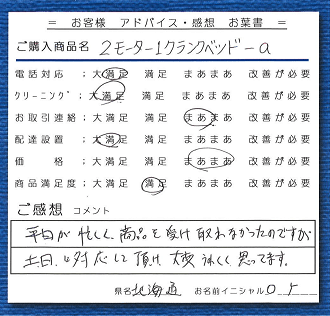 ＝ お客様 アドバイス・感想 お葉書 ＝
ご購入商品名 2モーター1クランクベッド-a
電話対応：大満足 満足 まあまあ 改善が必要
クリーニング：大満足 満足 まあまあ 改善が必要
お取引連絡：大満足 満足 まあまあ 改善が必要
配達設置：大満足 満足 まあまあ 改善が必要
価格：大満足 満足 まあまあ 改善が必要
商品満足度：大満足 満足 まあまあ 改善が必要
ご感想 コメント
平日が忙しく、商品を受け取れなかったのですが
土日に対応して頂け、大変嬉しく思ってます。
県名 北海道 お名前イニシャル O